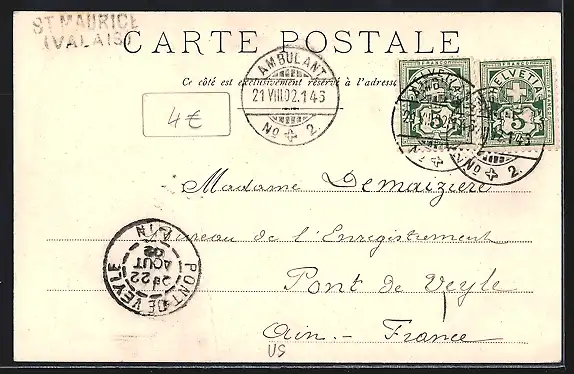 ST MAURICE
(VALAIS)
CARTE POSTALE
Ce côté est exclusivement réservé à l'adresse
AMBULANT
21 VIII.02.1 45
No 2.
FRANCO FRANCO
HELVETIA HELVETIA
5 5
No 2.
4€
Madame Demaizière
Bureau de l'Enregistrement
Pont de Veyle
Ain. - France
PONT-DE-VEYLE
AIN
22
AOUT
02
US